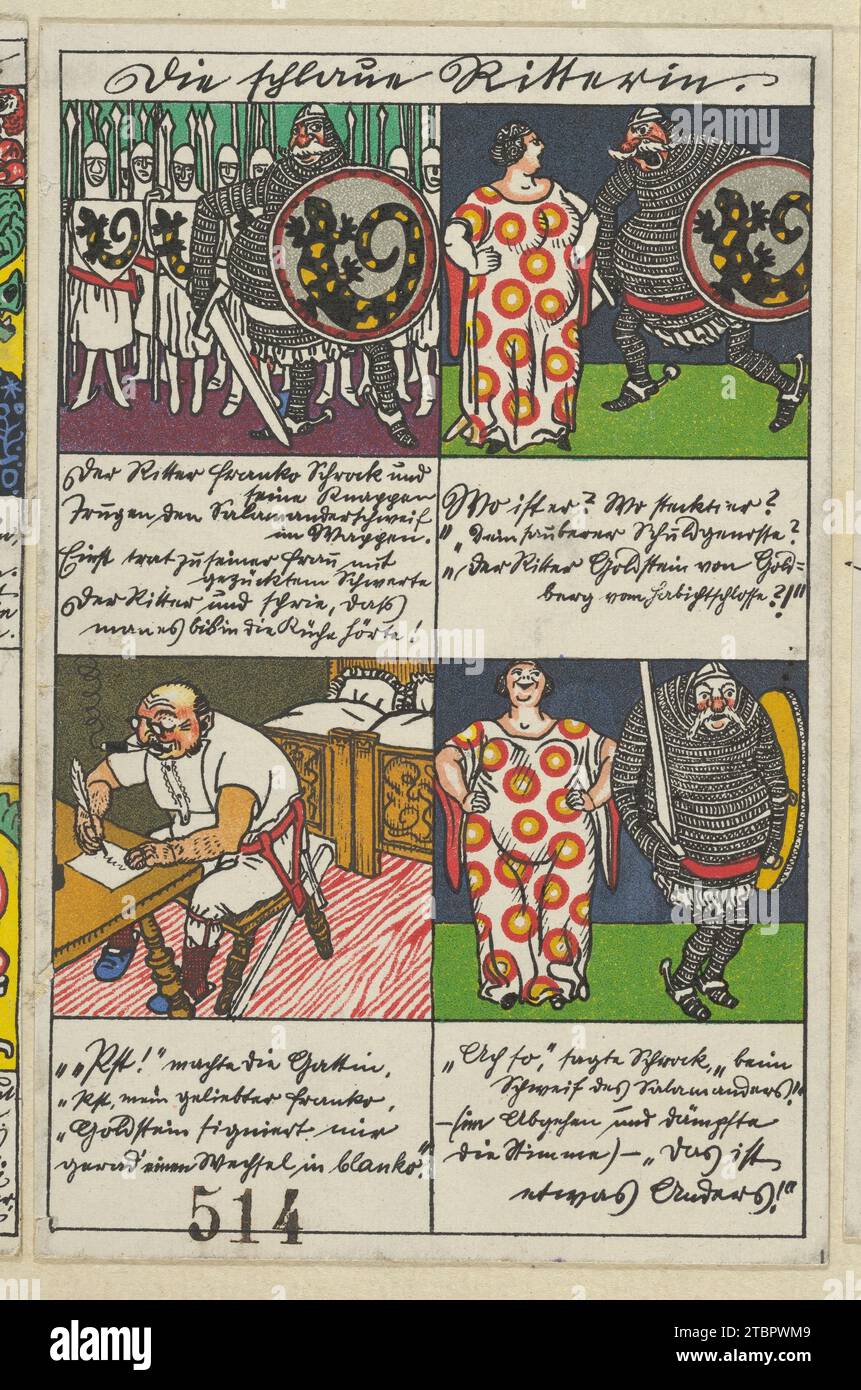 Die schlaue Ritterin.
Der Ritter Franko Schrock und
seine Knappen
Trugen den Salamanderschweif
im Wappen.
Einst trat zu seiner Frau mit
gezücktem Schwerte
Der Ritter und schrie, dass
man es bis in die Küche hörte!
Wo ist er? Wo steckt er?
"Dein sauberer Schuldgenosse?
"Der Ritter Goldstein von Gold=
berg vom Habichtschlosse?!"
""Pst!" machte die Gattin,
"Pst, mein geliebter Franko,
"Goldstein signiert mir
gerad' einen Wechsel in blanko."
"Ach so," sagte Schrock, "beim
Schweif des Salamanders!"
-(im Abgehen und dämpfte
die Stimme)- "Das ist
etwas Anders!"
514
alamy
Image ID: 2TBPWM9
www.alamy.com